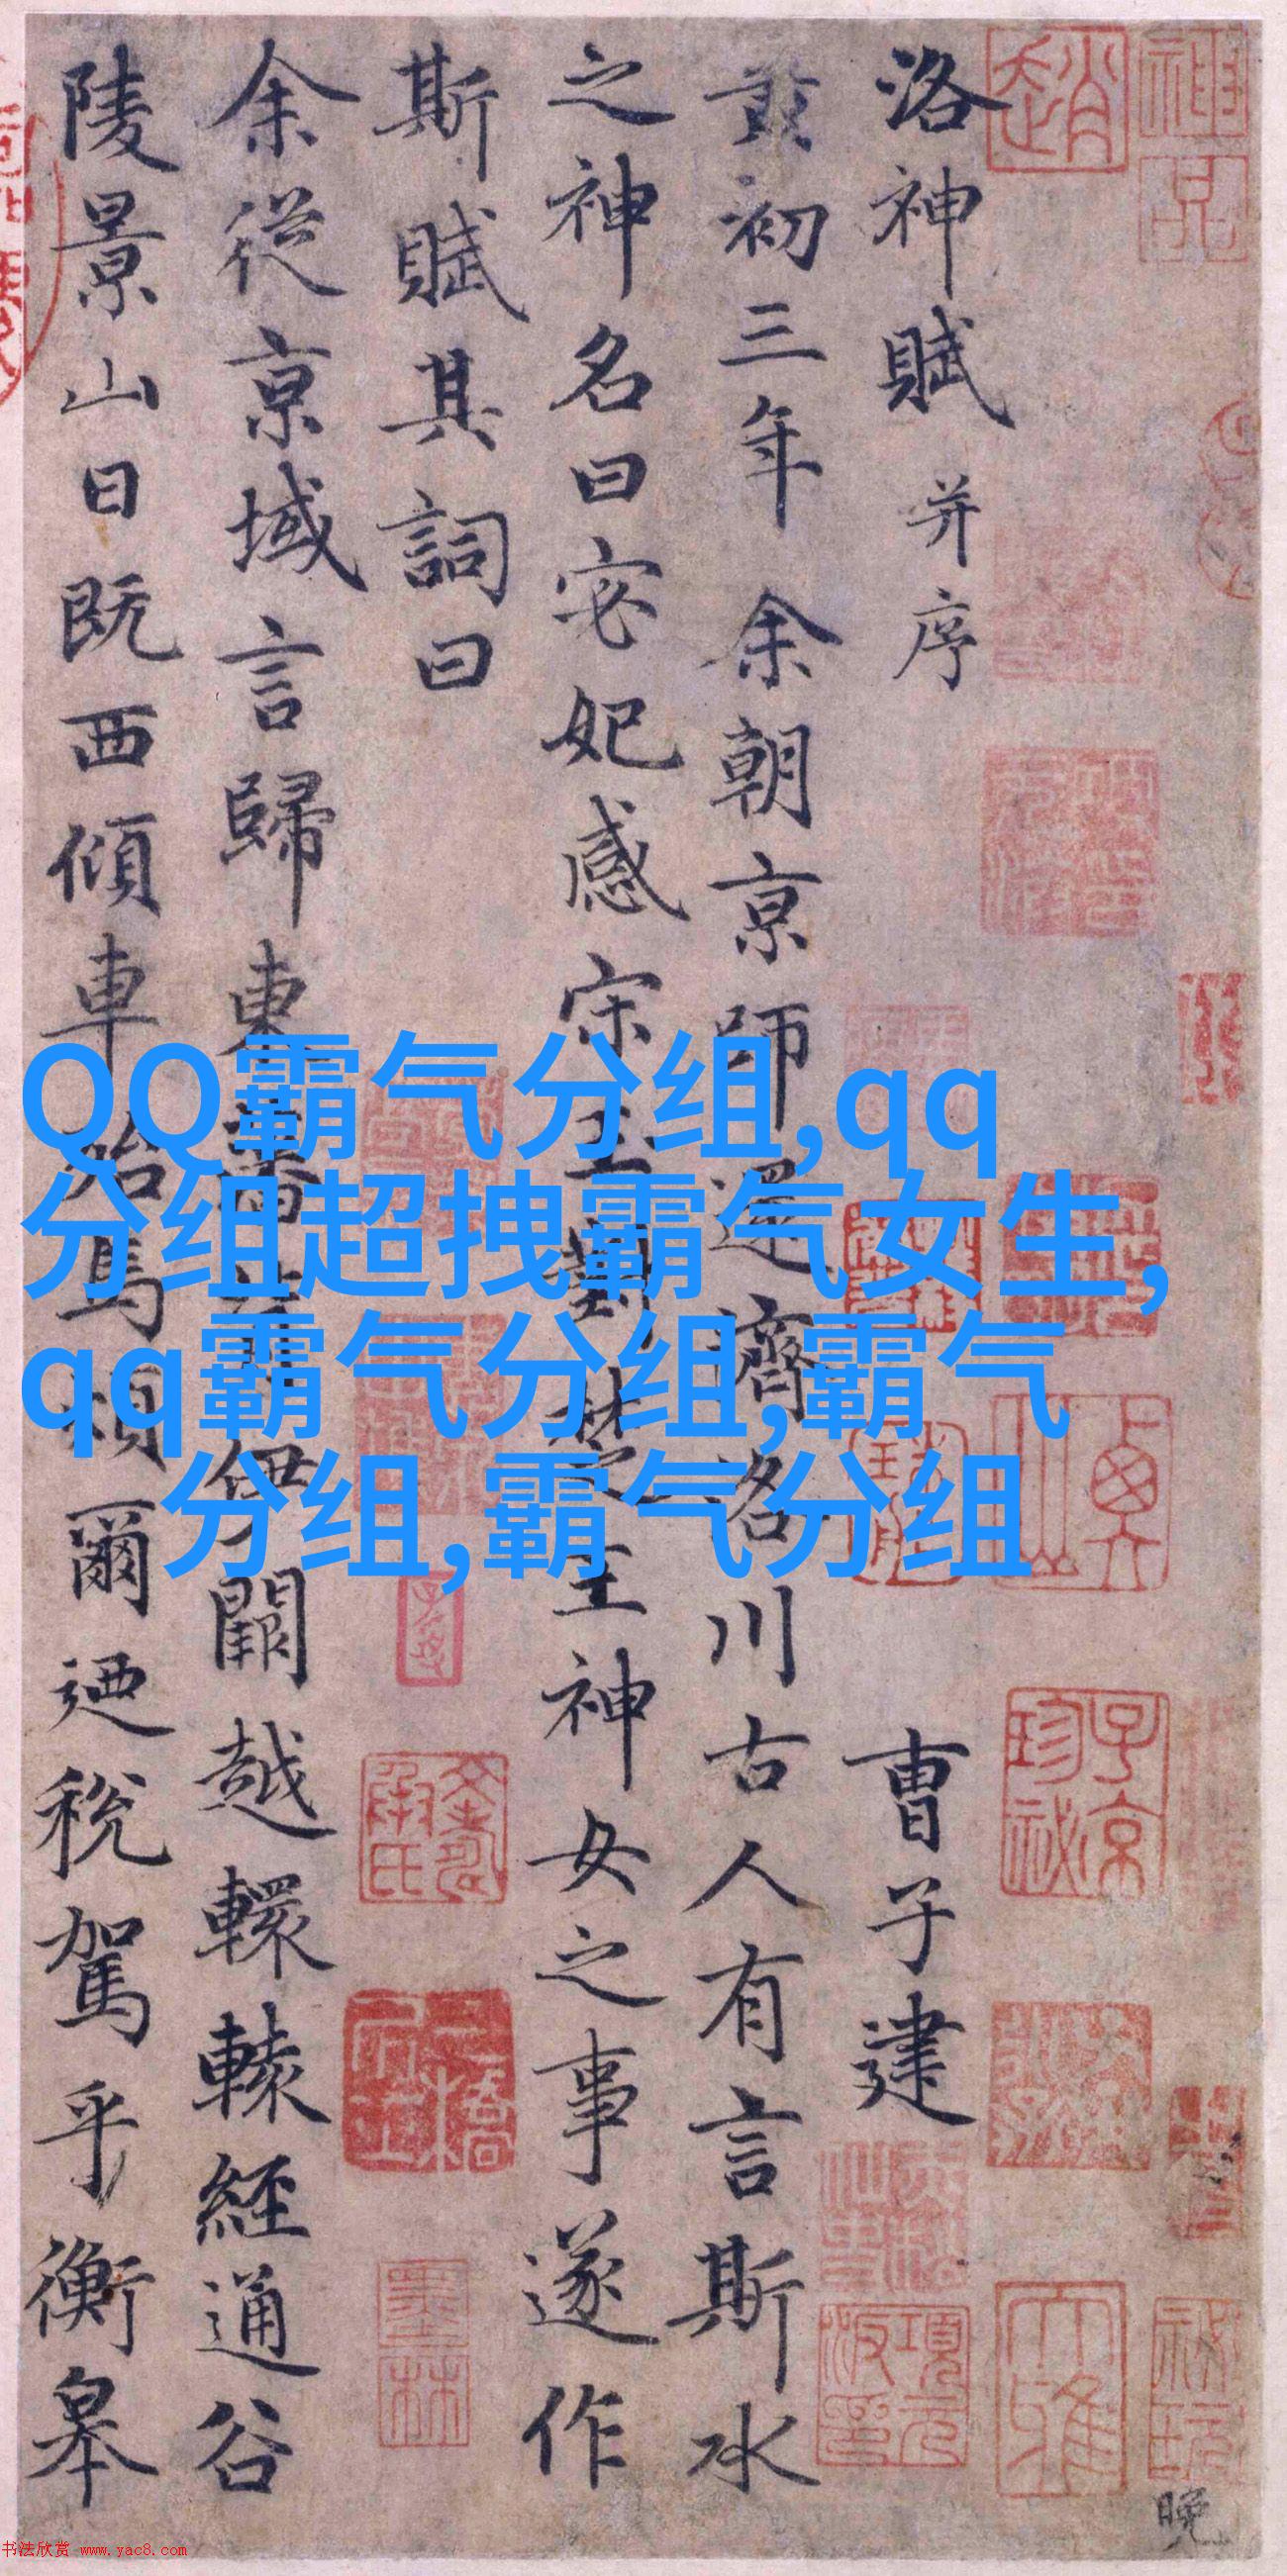 洛神賦 并序 曹子建
黄初三年余朝京師還濟洛川古人有言斯水
之神名曰宓妃感宋玉對楚王神女之事遂作
斯賦其詞曰
余從京域言歸東藩背伊闕越轘轅經通谷
陵景山日既西傾車殆馬煩爾迺稅駕乎衡皋
QQ霸气分组,qq
分组超拽霸气女生,
qq霸气分组,霸气
分组,霸气分组
趙
神品
子京珍祕
項元汴印
墨林
晚
书法欣赏 www.yac8.com